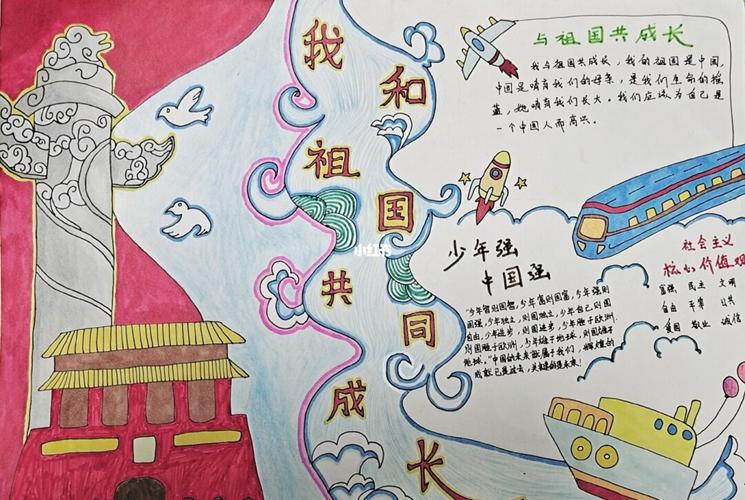 我和祖国共同成长
小红书
与祖国共成长
我与祖国共成长,我的祖国是中国,
中国是哺育我们的母亲,是我们生命的摇
篮,她哺育我们长大。我们应该为自己是
一个中国人而高兴。
少年强
中国强
"少年智则国智,少年富则国富,少年强则
国强,少年独立,则国独立,少年自己,则国
自由,少年进步,则国进步,少年胜于欧洲.
则国胜于欧洲,少年雄于地球,则国雄于
地球。"中国的未来就属于我们,辉煌的
成就已是过去,关键的是未来!
社会主义
核心价值观
富强 民主 文明
自由 平等
爱国 敬业 诚信